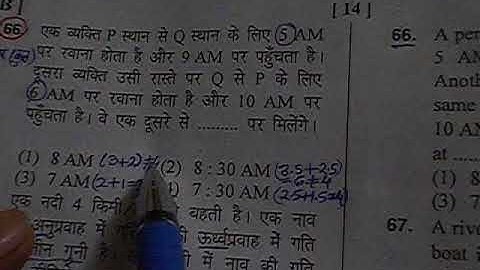 B]
[ 14 ]
66. एक व्यक्ति P स्थान से Q स्थान के लिए 5 AM
पर रवाना होता है और 9 AM पर पहुँचता है।
दूसरा व्यक्ति उसी रास्ते पर Q से P के लिए
6 AM पर रवाना होता है और 10 AM पर
पहुँचता है। वे एक दूसरे से ......... पर मिलेंगे।
(1) 8 AM (3+2)
(2) 8 : 30 AM (3.5+2.5)
=6≠4
(3) 7 AM (2+1
7 : 30 AM (2.5+1.5=4)
एक नदी 4 किमी बहती है। एक नाव
अनुप्रवाह में गति ऊर्ध्वप्रवाह में गति
गुनी है। में नाव की गति
66. A per
5 AM
Anoth
same
10 AM
at .....
(1)
(3) 7
67. A rive
boat i